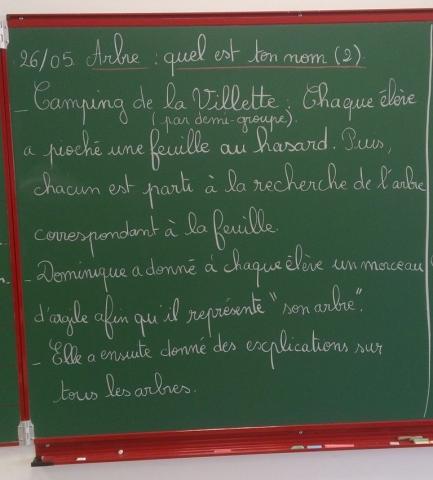 26/05 Arbre : quel est ton nom (2)
- Camping de la Villette : Chaque élève
(par demi-groupe).
a pioché une feuille au hasard. Puis,
chacun est parti à la recherche de l'arbre
correspondant à la feuille.
- Dominique a donné à chaque élève un morceau
d'argile afin qu'il représente "son arbre".
- Elle a ensuite donné des explications sur
tous les arbres.